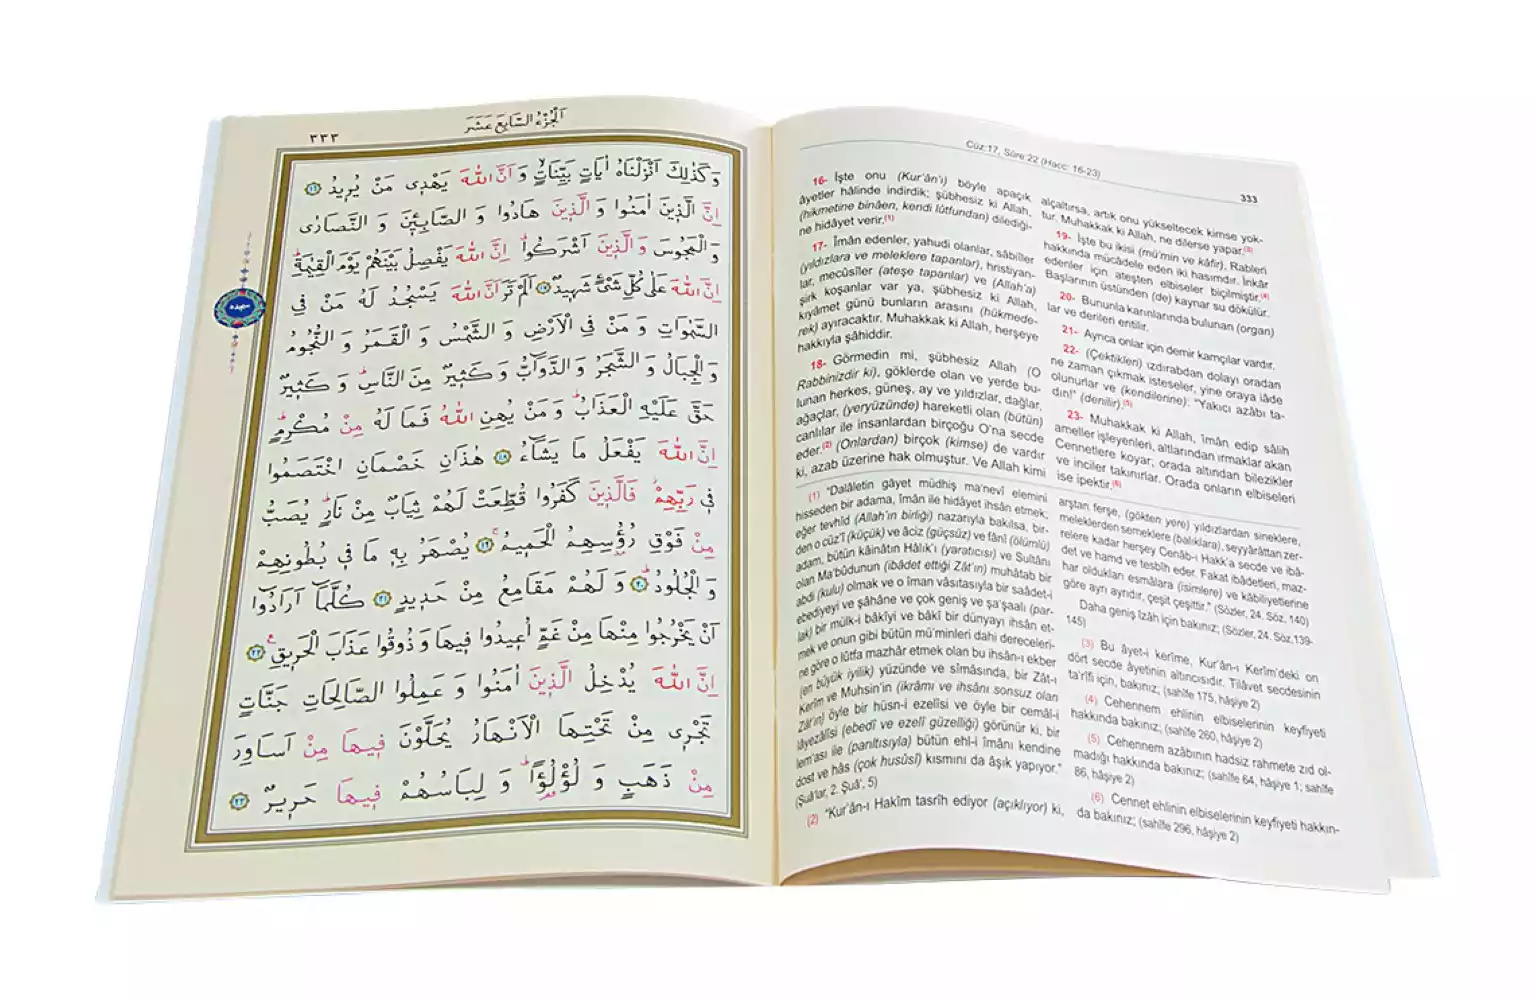 ٣٣٣
اَلْجُزْءُ السَّابِعَ عَشَرَ
وَكَذٰلِكَ اَنْزَلْنَاهُ اٰيَاتٍ بَيِّنَاتٍۙ وَاَنَّ اللّٰهَ يَهْد۪ى مَنْ يُر۪يدُ ﴿١٦﴾
اِنَّ الَّذ۪ينَ اٰمَنُوا وَالَّذ۪ينَ هَادُوا وَالصَّابِـ۪ٔينَ وَالنَّصَارٰى
وَالْمَجُوسَ وَالَّذ۪ينَ اَشْرَكُواۗ اِنَّ اللّٰهَ يَفْصِلُ بَيْنَهُمْ يَوْمَ الْقِيٰمَةِۜ
اِنَّ اللّٰهَ عَلٰى كُلِّ شَىْءٍ شَه۪يدٌ ﴿١٧﴾ اَلَمْ تَرَ اَنَّ اللّٰهَ يَسْجُدُ لَهُ مَنْ فِى
سجده
السَّمٰوَاتِ وَمَنْ فِى الْاَرْضِ وَالشَّمْسُ وَالْقَمَرُ وَالنُّجُومُ
وَالْجِبَالُ وَالشَّجَرُ وَالدَّوَٓابُّ وَكَث۪يرٌ مِنَ النَّاسِۜ وَكَث۪يرٌ
حَقَّ عَلَيْهِ الْعَذَابُۜ وَمَنْ يُهِنِ اللّٰهُ فَمَا لَهُ مِنْ مُكْرِمٍۜ
اِنَّ اللّٰهَ يَفْعَلُ مَا يَشَٓاءُ ﴿١٨﴾ هٰذَانِ خَصْمَانِ اخْتَصَمُوا
ف۪ى رَبِّهِمْۘ فَالَّذ۪ينَ كَفَرُوا قُطِّعَتْ لَهُمْ ثِيَابٌ مِنْ نَارٍۜ يُصَبُّ
مِنْ فَوْقِ رُؤُ۫سِهِمُ الْحَم۪يمُۚ ﴿١٩﴾ يُصْهَرُ بِه۪ مَا ف۪ى بُطُونِهِمْ
وَالْجُلُودُۜ ﴿٢٠﴾ وَلَهُمْ مَقَامِعُ مِنْ حَد۪يدٍ ﴿٢١﴾ كُلَّمَٓا اَرَادُٓوا
اَنْ يَخْرُجُوا مِنْهَا مِنْ غَمٍّ اُع۪يدُوا ف۪يهَا وَذُوقُوا عَذَابَ الْحَر۪يقِ۟ ﴿٢٢﴾
اِنَّ اللّٰهَ يُدْخِلُ الَّذ۪ينَ اٰمَنُوا وَعَمِلُوا الصَّالِحَاتِ جَنَّاتٍ
تَجْر۪ى مِنْ تَحْتِهَا الْاَنْهَارُ يُحَلَّوْنَ ف۪يهَا مِنْ اَسَاوِرَ
مِنْ ذَهَبٍ وَلُؤْلُؤً۬اۜ وَلِبَاسُهُمْ ف۪يهَا حَر۪يرٌ ﴿٢٣﴾
Cüz:17, Sûre:22 (Hacc: 16-23)
333
16- İşte onu (Kur'ân'ı) böyle apaçık
âyetler hâlinde indirdik; şübhesiz ki Allah,
(hikmetine binâen, kendi lütfundan) dilediği-
ne hidâyet verir.(1)
17- Îmân edenler, yahudi olanlar, sâbiîler
(yıldızlara ve meleklere tapanlar), hristiyan-
lar, mecûsîler (ateşe tapanlar) ve (Allah'a)
şirk koşanlar var ya, şübhesiz ki Allah,
kıyâmet günü bunların arasını (hükmede-
rek) ayıracaktır. Muhakkak ki Allah, herşeye
hakkıyla şâhiddir.
18- Görmedin mi, şübhesiz Allah (O
Rabbinizdir ki), göklerde olan ve yerde bu-
lunan herkes, güneş, ay ve yıldızlar, dağlar,
ağaçlar, (yeryüzünde) hareketli olan (bütün)
canlılar ile insanlardan birçoğu O'na secde
eder.(2) (Onlardan) birçok (kimse) de vardır
ki, azab üzerine hak olmuştur. Ve Allah kimi
alçaltırsa, artık onu yükseltecek kimse yok-
tur. Muhakkak ki Allah, ne dilerse yapar.(3)
19- İşte bu ikisi (mü'min ve kâfir), Rableri
hakkında mücâdele eden iki hasımdır. İnkâr
edenler için ateşten elbiseler biçilmiştir.(4)
Başlarının üstünden (de) kaynar su dökülür.
20- Bununla karınlarında bulunan (organ)
lar ve derileri eritilir.
21- Ayrıca onlar için demir kamçılar vardır.
22- (Çektikleri) ızdırabdan dolayı oradan
ne zaman çıkmak isteseler, yine oraya iâde
olunurlar ve (kendilerine): "Yakıcı azâbı ta-
dın!" (denilir).(5)
23- Muhakkak ki Allah, îmân edip sâlih
ameller işleyenleri, altlarından ırmaklar akan
Cennetlere koyar; orada altından bilezikler
ve inciler takınırlar. Orada onların elbiseleri
ise ipektir.(6)
(1) "Dalâletin gâyet müdhiş ma'nevî elemini
hisseden bir adama, îmân ile hidâyet ihsân etmek;
eğer tevhîd (Allah'ın birliği) nazarıyla bakılsa, bir-
den o cüz'î (küçük) ve âciz (güçsüz) ve fânî (ölümlü)
adam, bütün kâinâtın Hâlık'ı (yaratıcısı) ve Sultânı
olan Ma'bûdunun (ibâdet ettiği Zât'ın) muhâtab bir
abdi (kulu) olmak ve o îmân vâsıtasıyla bir saâdet-i
ebediyeyi ve şâhâne ve çok geniş ve şa'şaalı (par-
lak) bir mülk-i bâkîyi ve bâkî bir dünyayı ihsân et-
mek ve onun gibi bütün mü'minleri dahi dereceleri-
ne göre o lûtfa mazhâr etmek olan bu ihsân-ı ekber
(en büyük iyilik) yüzünde ve sîmâsında, bir Zât-ı
Kerîm ve Muhsin'in (ikrâmı ve ihsânı sonsuz olan
Zât'ın) öyle bir hüsn-i ezelîsi ve öyle bir cemâl-i
lâyezâlîsi (ebedî ve ezelî güzelliği) görünür ki, bir
lem'ası ile (parıltısıyla) bütün ehl-i îmânı kendine
dost ve hâs (çok husûsî) kısmını da âşık yapıyor."
(Şuâ'lar, 2. Şuâ', 5)
(2) "Kur'ân-ı Hakîm tasrîh ediyor (açıklıyor) ki,
arştan ferşe, (gökten yere) yıldızlardan sineklere,
meleklerden semeklere (balıklara), seyyârâttan zer-
relere kadar herşey Cenâb-ı Hakk'a secde ve ibâ-
det ve hamd ve tesbîh eder. Fakat ibâdetleri, maz-
har oldukları esmâlara (isimlere) ve kâbiliyetlerine
göre ayrı ayrıdır, çeşit çeşittir." (Sözler, 24. Söz, 140)
Daha geniş îzâh için bakınız; (Sözler, 24. Söz,139-
145)
(3) Bu âyet-i kerîme, Kur'ân-ı Kerîm'deki on
dört secde âyetinin altıncısıdır. Tilâvet secdesinin
ta'rîfi için, bakınız; (sahîfe 175, hâşiye 2)
(4) Cehennem ehlinin elbiselerinin keyfiyeti
hakkında bakınız; (sahîfe 260, hâşiye 2)
(5) Cehennem azâbının hadsiz rahmete zıd ol-
madığı hakkında bakınız; (sahîfe 64, hâşiye 1; sahîfe
86, hâşiye 2)
(6) Cennet ehlinin elbiselerinin keyfiyeti hakkın-
da bakınız; (sahîfe 296, hâşiye 2)